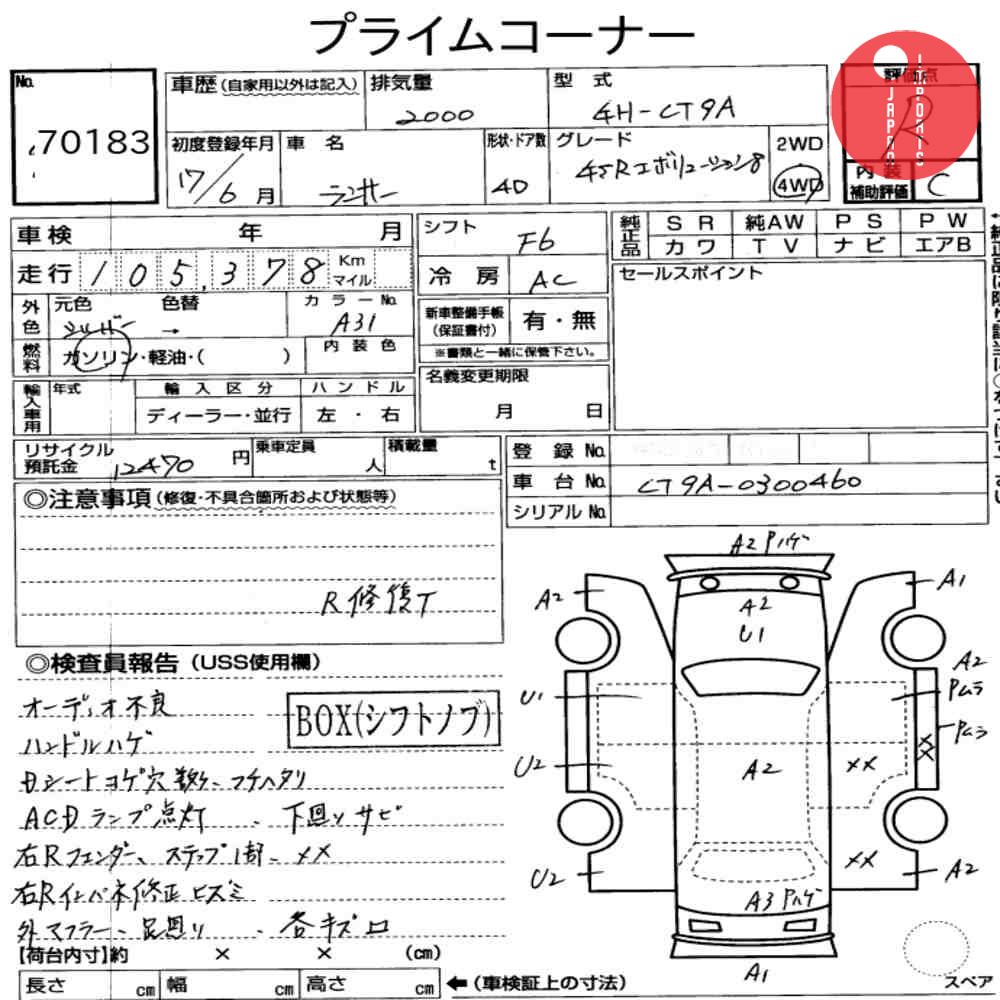 プライムコーナー
JAPAN
IMPORTS
No.
70183
車歴 (自家用以外は記入)
排気量
2000
型 式
4H-CT9A
評価点
R
初度登録年月
17/6 月
車 名
ランサー
形状・ドア数
4D
グレード
2WD
4WD
内装
補助評価
C
車検 年 月
シフト
F6
純正品
SR 純AW PS PW
カワ TV ナビ エアB
走行 105,378 Km マイル
冷房
AC
セールスポイント
外色
元色 色替
シルバー →
カラーNo.
A31
新車整備手帳
(保証書付)
有・無
※書類と一緒に保管下さい。
燃料
ガソリン・軽油・( )
内装色
名義変更期限
月 日
輸入車用
年式
輸入区分
ディーラー・並行
ハンドル
左・右
リサイクル
預託金
12470 円
乗車定員
人
積載量
t
登録 No.
車台 No.
CT9A-0300460
シリアル No.
◎注意事項 (修復・不具合箇所および状態等)
R修復T
◎検査員報告 (USS使用欄)
オーディオ不良
BOX(シフトノブ)
ハンドルハゲ
ACDランプ点灯、下廻りサビ
右Rフェンダー、ステップ1部、XX
右Rインパネ修正ヒズミ
外マフラー、足廻り、各キズ凹
【荷台内寸】約 × × (cm)
長さ cm 幅 cm 高さ cm
←(車検証上の寸法)
A2 Pハゲ
A2
A1
A2
U1
A2
U1
Pムラ
Pムラ
XX
U2
A2
XX
XX
U2
A2
A3 Pハゲ
A1
スペア